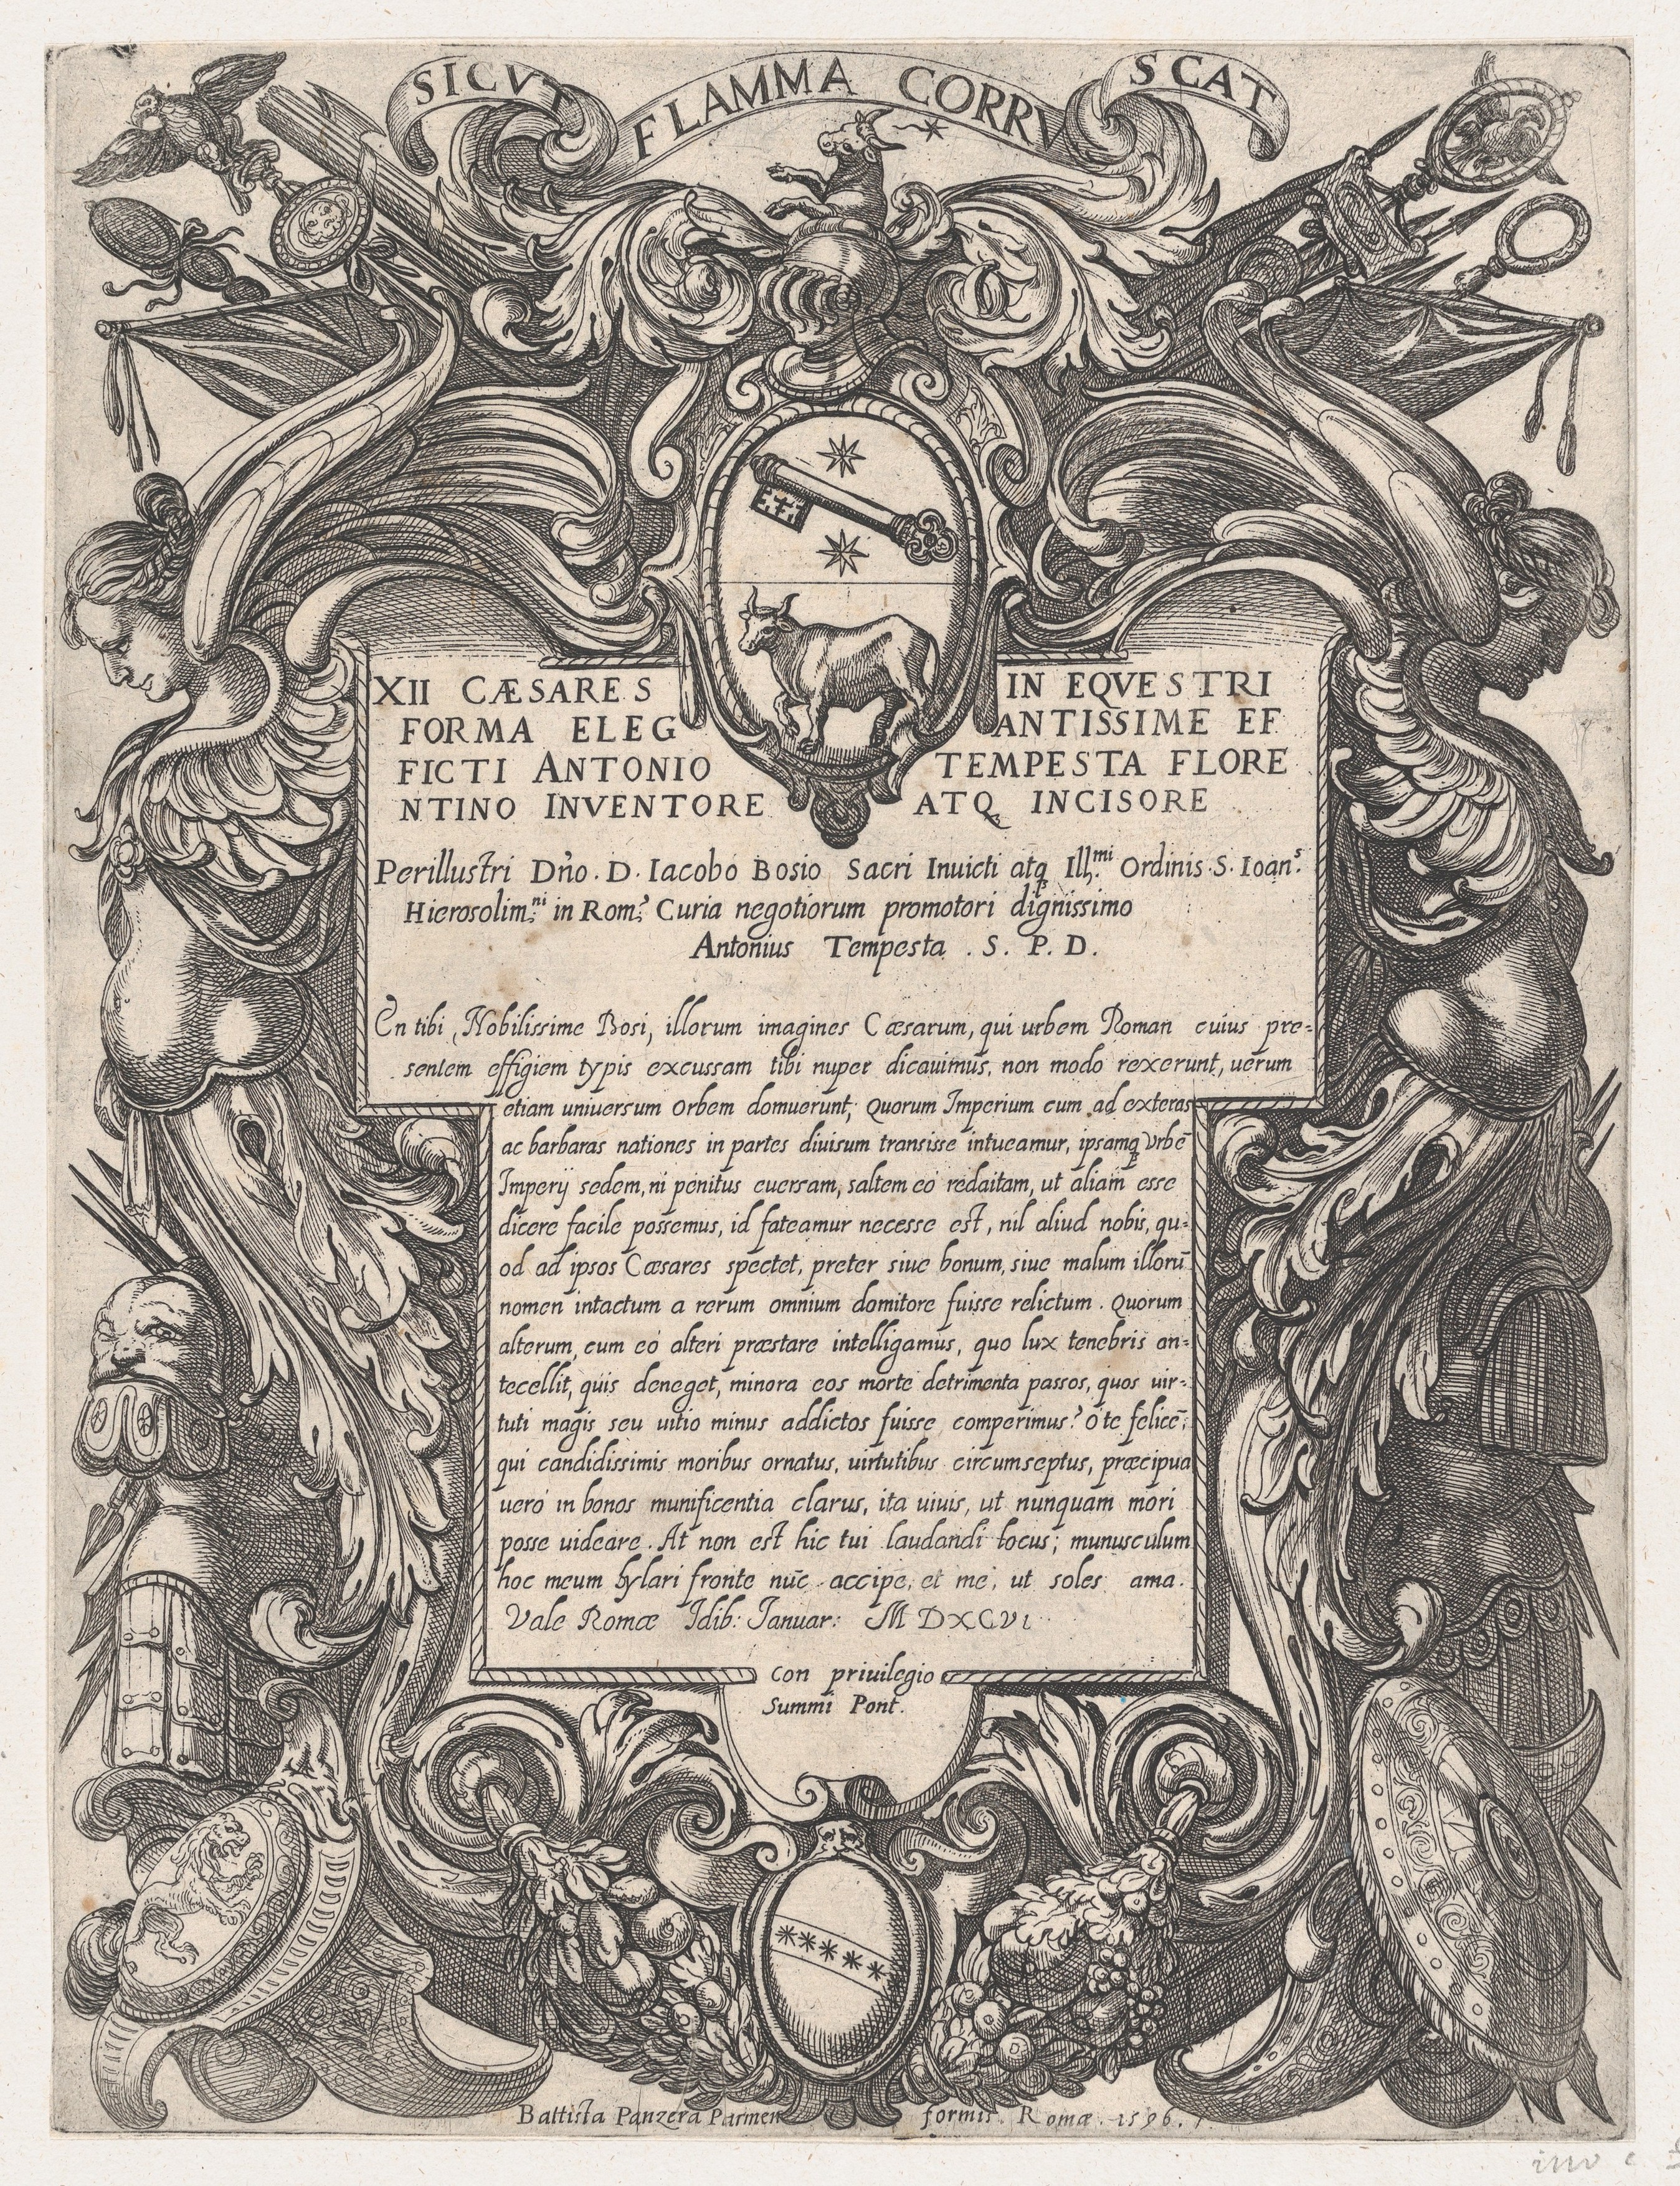 SICVT FLAMMA CORRVSCAT
XII CÆSARES IN EQVESTRI
FORMA ELEGANTISSIME EF
FICTI ANTONIO TEMPESTA FLORE
NTINO INVENTORE ATQ INCISORE
Perillustri Dn̄o. D. Iacobo Bosio Sacri Inuicti atq Ill.mi Ordinis S. Ioan.s
Hierosolim.ni in Rom.a Curia negotiorum promotori dignissimo
Antonius Tempesta . S. P. D.
En tibi, Nobilissime Bosi, illorum imagines Cæsarum, qui urbem Roman cuius pre=
sentem effigiem typis excussam tibi nuper dicauimus, non modo rexerunt, uerum
etiam uniuersum Orbem domuerunt; Quorum Imperium cum ad exteras
ac barbaras nationes in partes diuisum transisse intueamur, ipsamq Vrbē
Imperij sedem, ni penitus euersam, saltem eò redaitam, ut aliam esse
dicere facile possemus, id fateamur necesse est, nil aliud nobis, qu=
od ad ipsos Cæsares spectet, preter siue bonum, siue malum illorū
nomen intactum a rerum omnium domitore fuisse relictum. Quorum
alterum, cum eò alteri præstare intelligamus, quo lux tenebris an=
tecellit, quis deneget, minora eos morte detrimenta passos, quos uir=
tuti magis seu uitio minus addictos fuisse comperimus? O te felicē,
qui candidissimis moribus ornatus, uirtutibus circumseptus, præcipua
uerò in bonos munificentia clarus, ita uiuis, ut nunquam mori
posse uideare. At non est hic tui laudandi locus; munusculum
hoc meum hylari fronte nūc accipe, et me, ut soles ama.
Vale Romæ Idib: Ianuar: M DXCVI
con priuilegio
Summi Pont.
Battista Panzera Parmen formis Romæ. 1596.